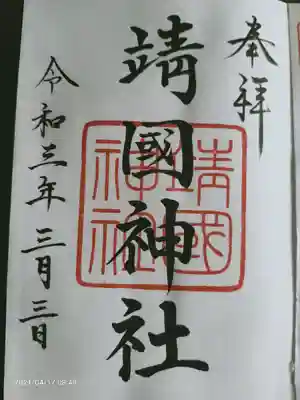 奉拝
靖國神社
靖國神社
令和三年三月三日
2021/04/17 08:48